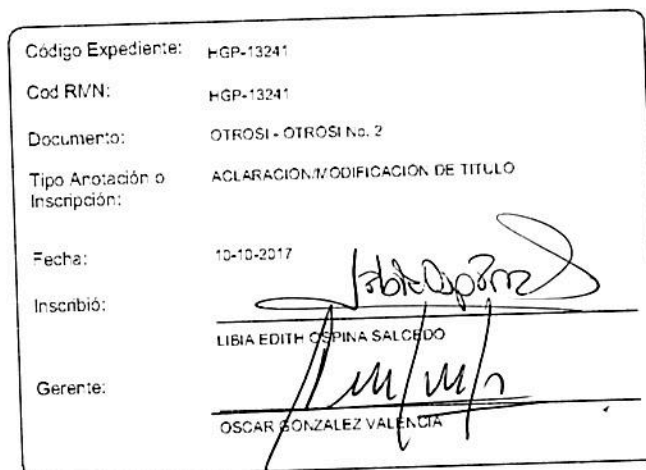 Código Expediente: HGP-13241
Cod RMN: HGP-13241
Documento: OTROSI - OTROSI No. 2
Tipo Anotación o Inscripción: ACLARACION/MODIFICACION DE TITULO
Fecha: 10-10-2017
Inscribió:
LIBIA EDITH OSPINA SALCEDO
Gerente:
OSCAR GONZALEZ VALENCIA